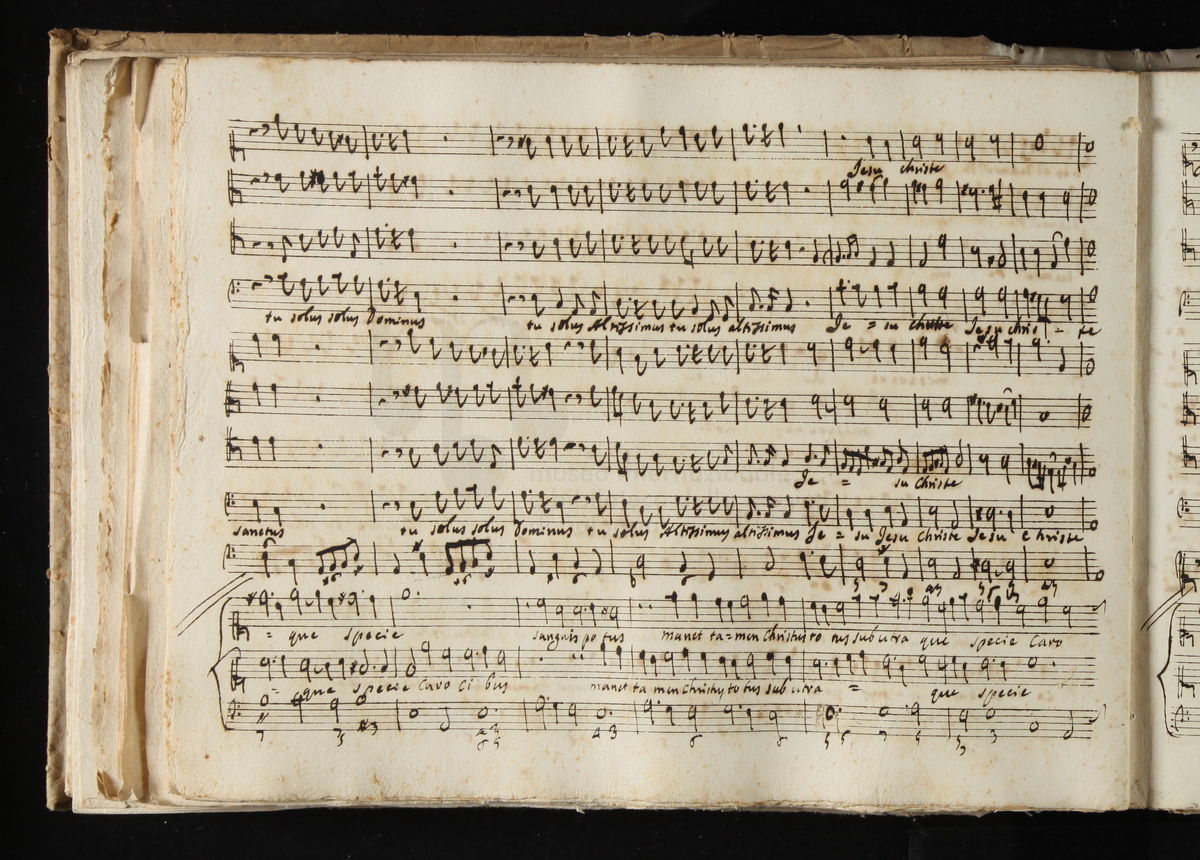 Jesu christe
tu solus solus Dominus tu solus Altissimus tu solus altissimus Je = su christe Jesu chris - te
Je = su Christe
sanctus tu solus solus Dominus tu solus Altissimus altissimus Je = su Jesu Christe Jesu christe
= que specie sanguis potus manet ta=men Christus to tus sub utra que specie Caro
= que specie Caro Ci bus manet ta men Christus to tus sub utra = que specie